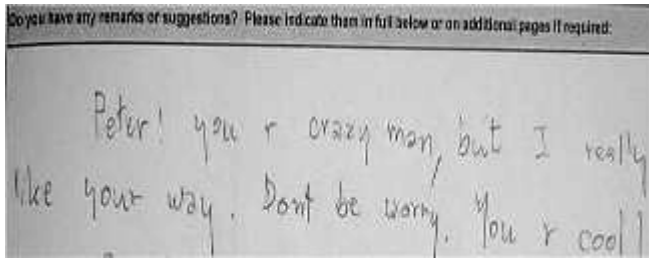 Do you have any remarks or suggestions? Please indicate them in full below or on additional pages if required:
Peter! you r crazy man, but I really
like your way. Dont be worry. You r cool!